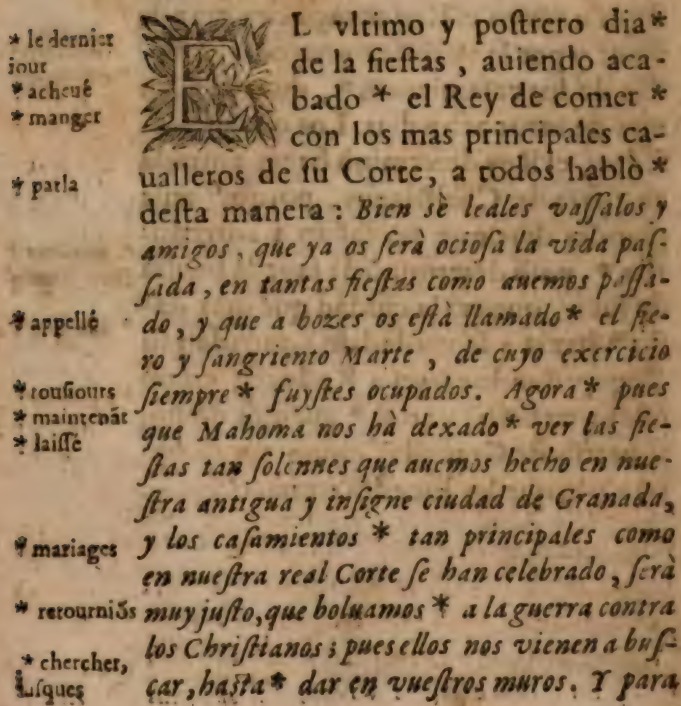 * le dernier
iour
* acheué
* manger
* parla
* appellé
* tousiours
* maintenāt
* laissé
* mariages
* retourniōs
* chercher,
iusques
EL vltimo y poſtrero dia*
de la fieſtas, auiendo aca-
bado * el Rey de comer *
con los mas principales ca-
ualleros de ſu Corte, a todos hablò *
deſta manera : Bien sè leales vaſſalos y
amigos, que ya os ſerà ocioſa la vida paſ-
ſada, en tantas fieſtas como auemos paſſa-
do, y que a bozes os eſtà llamado* el fie-
ro y ſangriento Marte, de cuyo exercicio
ſiempre* fuyſtes ocupados. Agora* pues
que Mahoma nos hà dexado* ver las fie-
ſtas tan ſolennes que auemos hecho en nue-
ſtra antigua y inſigne ciudad de Granada,
y los caſamientos * tan principales como
en nueſtra real Corte ſe han celebrado, ſerà
muy juſto, que boluamos * a la guerra contra
los Chriſtianos; pues ellos nos vienen a buſ-
çar, haſta* dar en vueſtros muros. Y para